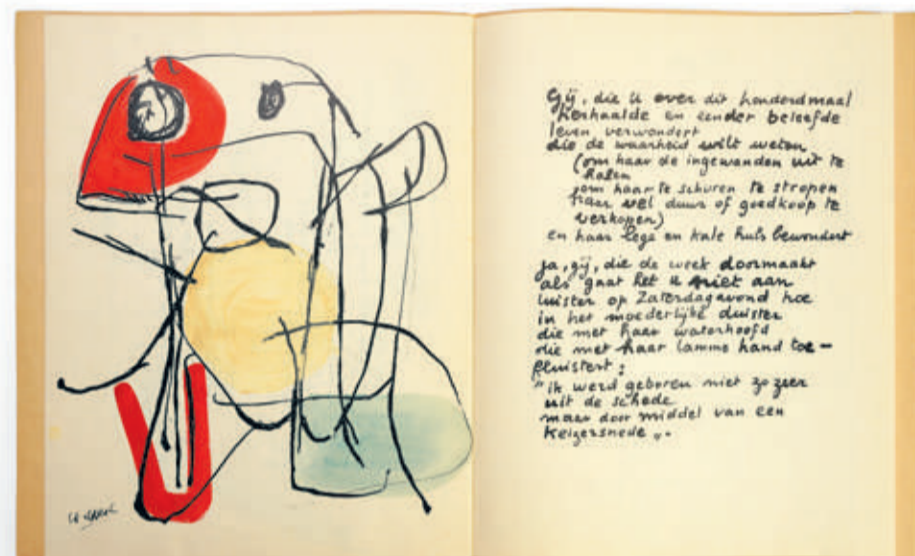 Gij, die U over dit honderdmaal
herhaalde en eender beleefde
leven verwondert
die de waarheid wilt weten
(om haar de ingewanden uit te
halen
om haar te schuren te stropen
haar vel duur of goedkoop te
verkopen)
en haar lege en kale huls bewondert
ja, gij, die de week doormaakt
als gaat het u niet aan
luister op Zaterdagavond hoe
in het moederlijke duister
die met haar waterhoofd
die met haar lamme hand toe-
fluistert:
"ik werd geboren niet zo zeer
uit de schede
maar door middel van een
Keizersnede".